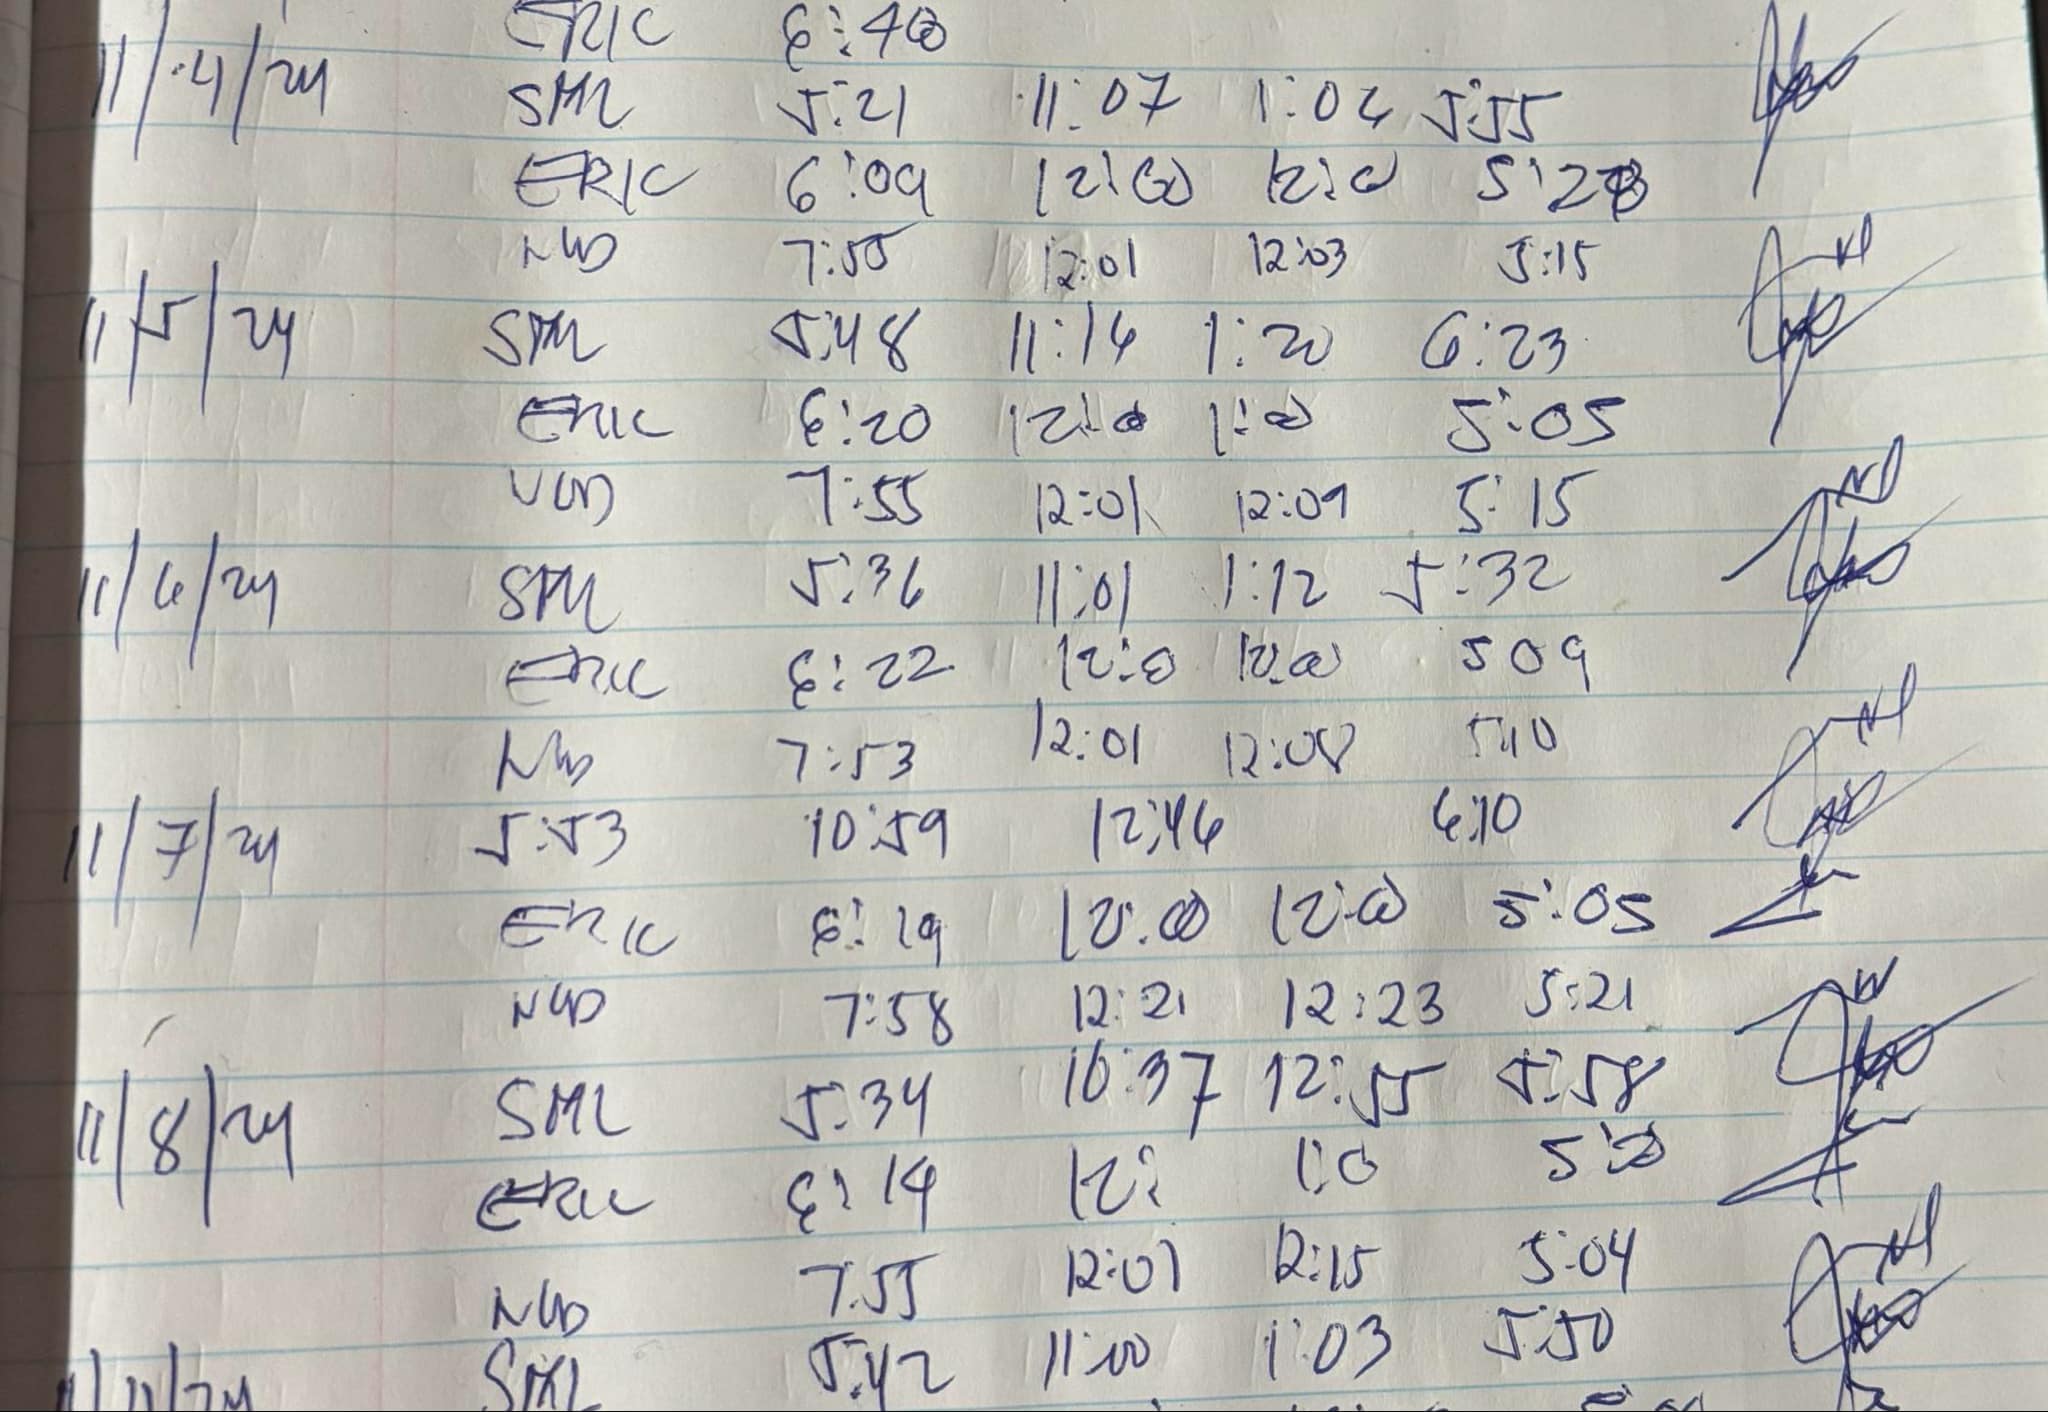 ERIC 6:40
11/4/24 SML 5:21 11:07 1:02 5:55
ERIC 6:09 12:00 12:0 5:28
NLD 7:55 12:01 12:03 5:15
11/5/24 SML 5:48 11:16 1:20 6:23
ERIC 6:20 12:0 1:0 5:05
NLD 7:55 12:01 12:09 5:15
11/6/24 SML 5:36 11:01 1:12 5:32
ERIC 6:22 12:0 12:0 5 09
NLD 7:53 12:01 12:08 5:10
11/7/24 5:53 10:59 12:46 6:10
ERIC 6:19 12:00 12:0 5:05
NLD 7:58 12:21 12:23 5:21
11/8/24 SML 5:34 10:37 12:55 5:58
ERIC 6:14 12: 1:0
NLD 7:55 12:07 12:15 5:04
11/11/24 SML 5:42 11:00 1:03 5:50